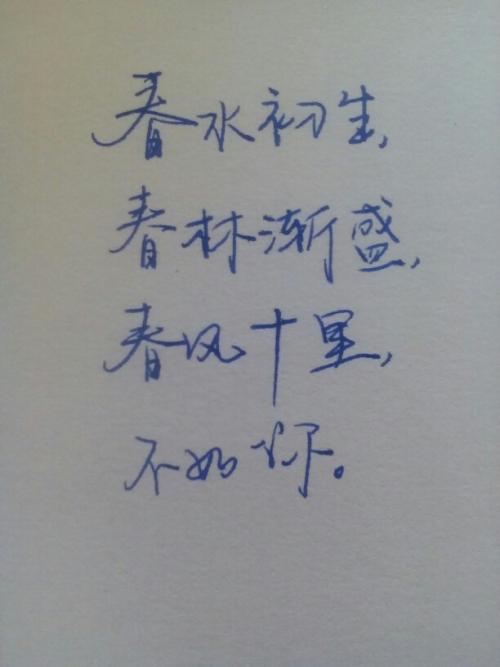 春水初生,
春林渐盛,
春风十里,
不如你。